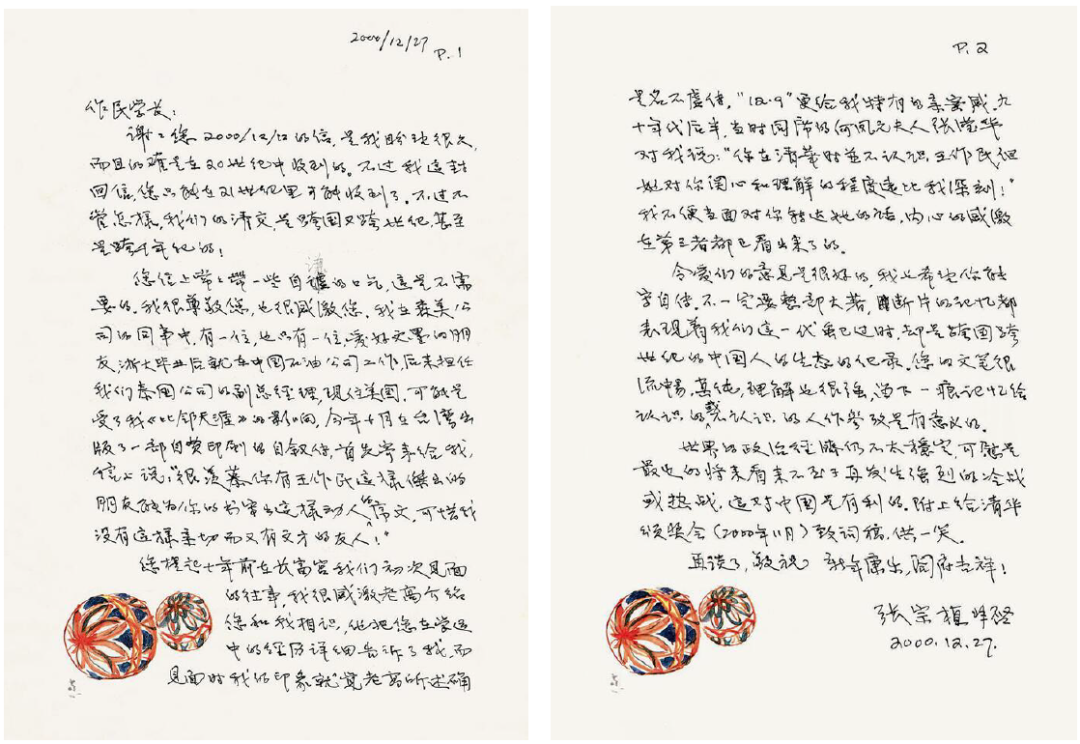 2000/12/27
P.1
作民学长：
谢谢您2000/12/12的信，是我盼望很久，
而且的确是在20世纪中收到的。不过我这封
回信，您只能在21世纪里才能收到了。不过不
管怎样，我们的清交，是跨国又跨世纪，甚至
是跨千年纪的！
您信上常常带一些自谦的口气，这是不需
要的。我很尊敬您，也很感激您。我在森美公
司的同事中，有一位，也只有一位，爱好文墨的朋
友，浙大毕业后就在中国石油公司工作，后来担任
我们泰国公司的副总经理，现住美国。可能是
受了我《比邻天涯》的影响，今年十月在台湾出
版了一部自费印刷的自叙传，首先寄来给我，
信上说：“很羡慕你有王作民这样杰出的
朋友能为你的书写出这样动人的序文，可惜我
没有这样亲切而又有文才的友人！”
您提起七年前在长富宫我们初次见面
的往事，我很感激老高介绍
您和我相识，他把您在学运
中的经历详细告诉了我，而
见面时我的印象就觉老高所述确
P.2
是名不虚传，“12.9”更给我特有的亲密感。九
十年代后半，当时同席的何凤元夫人张滢华
对我说：“你在清华时并不认识王作民但
她对你关心和理解的程度远比我深刻！”
我不便当面对你转达她的话，内心的感激
在第三者都已看出来了的。
令爱们的意见是很好的，我也希望你能
写自传。不一定要整部大著，断片的记忆都
表现着我们这一代虽已过时，却是跨国跨
世纪的中国人的生态的纪录。您的文笔很
流畅，其他，理解也很强，留下一痕记忆给
认识的或不认识的人作参考是有意义的。
世界的政治经济仍不太稳定，可能是
最近的将来看来不至于再发生强烈的冷战
或热战，这对中国是有利的。附上给清华
颁奖会（2000年11月）致词稿，供一笑。
再谈了，敬祝 新年康乐，阖府吉祥！
张宗植 拜启
2000.12.27.